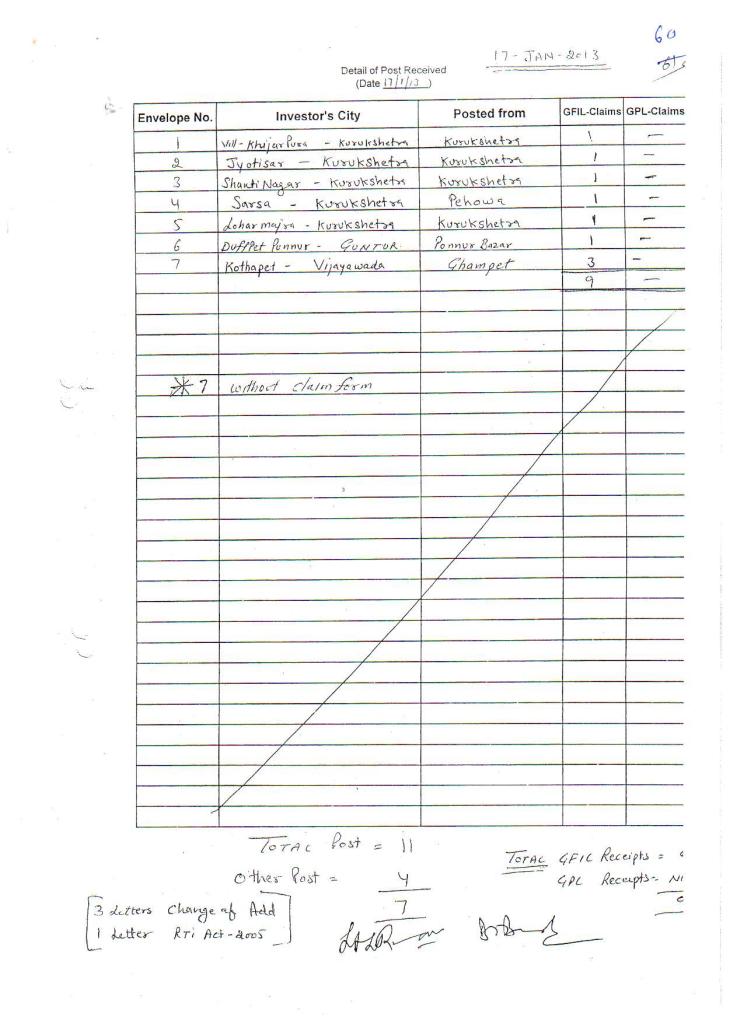 60
17-JAN-2013
Detail of Post Received
(Date 17/1/13)
Envelope No. Investor's City Posted from GFIL-Claims GPL-Claims
1 Vill-Khijar Pura - Kurukshetra Kurukshetra 1 —
2 Jyotisar - Kurukshetra Kurukshetra 1 —
3 Shanti Nagar - Kurukshetra Kurukshetra 1 —
4 Sarsa - Kurukshetra Pehowa 1 —
5 Lohar majra - Kurukshetra Kurukshetra 1 —
6 Ponnur - GUNTUR. Ponnur Bazar 1 —
7 Kothapet - Vijayawada Ghampet 3 —
9 —
* 7 without claim form
TOTAL Post = 11
TOTAL GFIL Receipts =
Other Post = 4
GPL Receipts - NI
7
3 Letters Change of Add
1 Letter RTi Act-2005